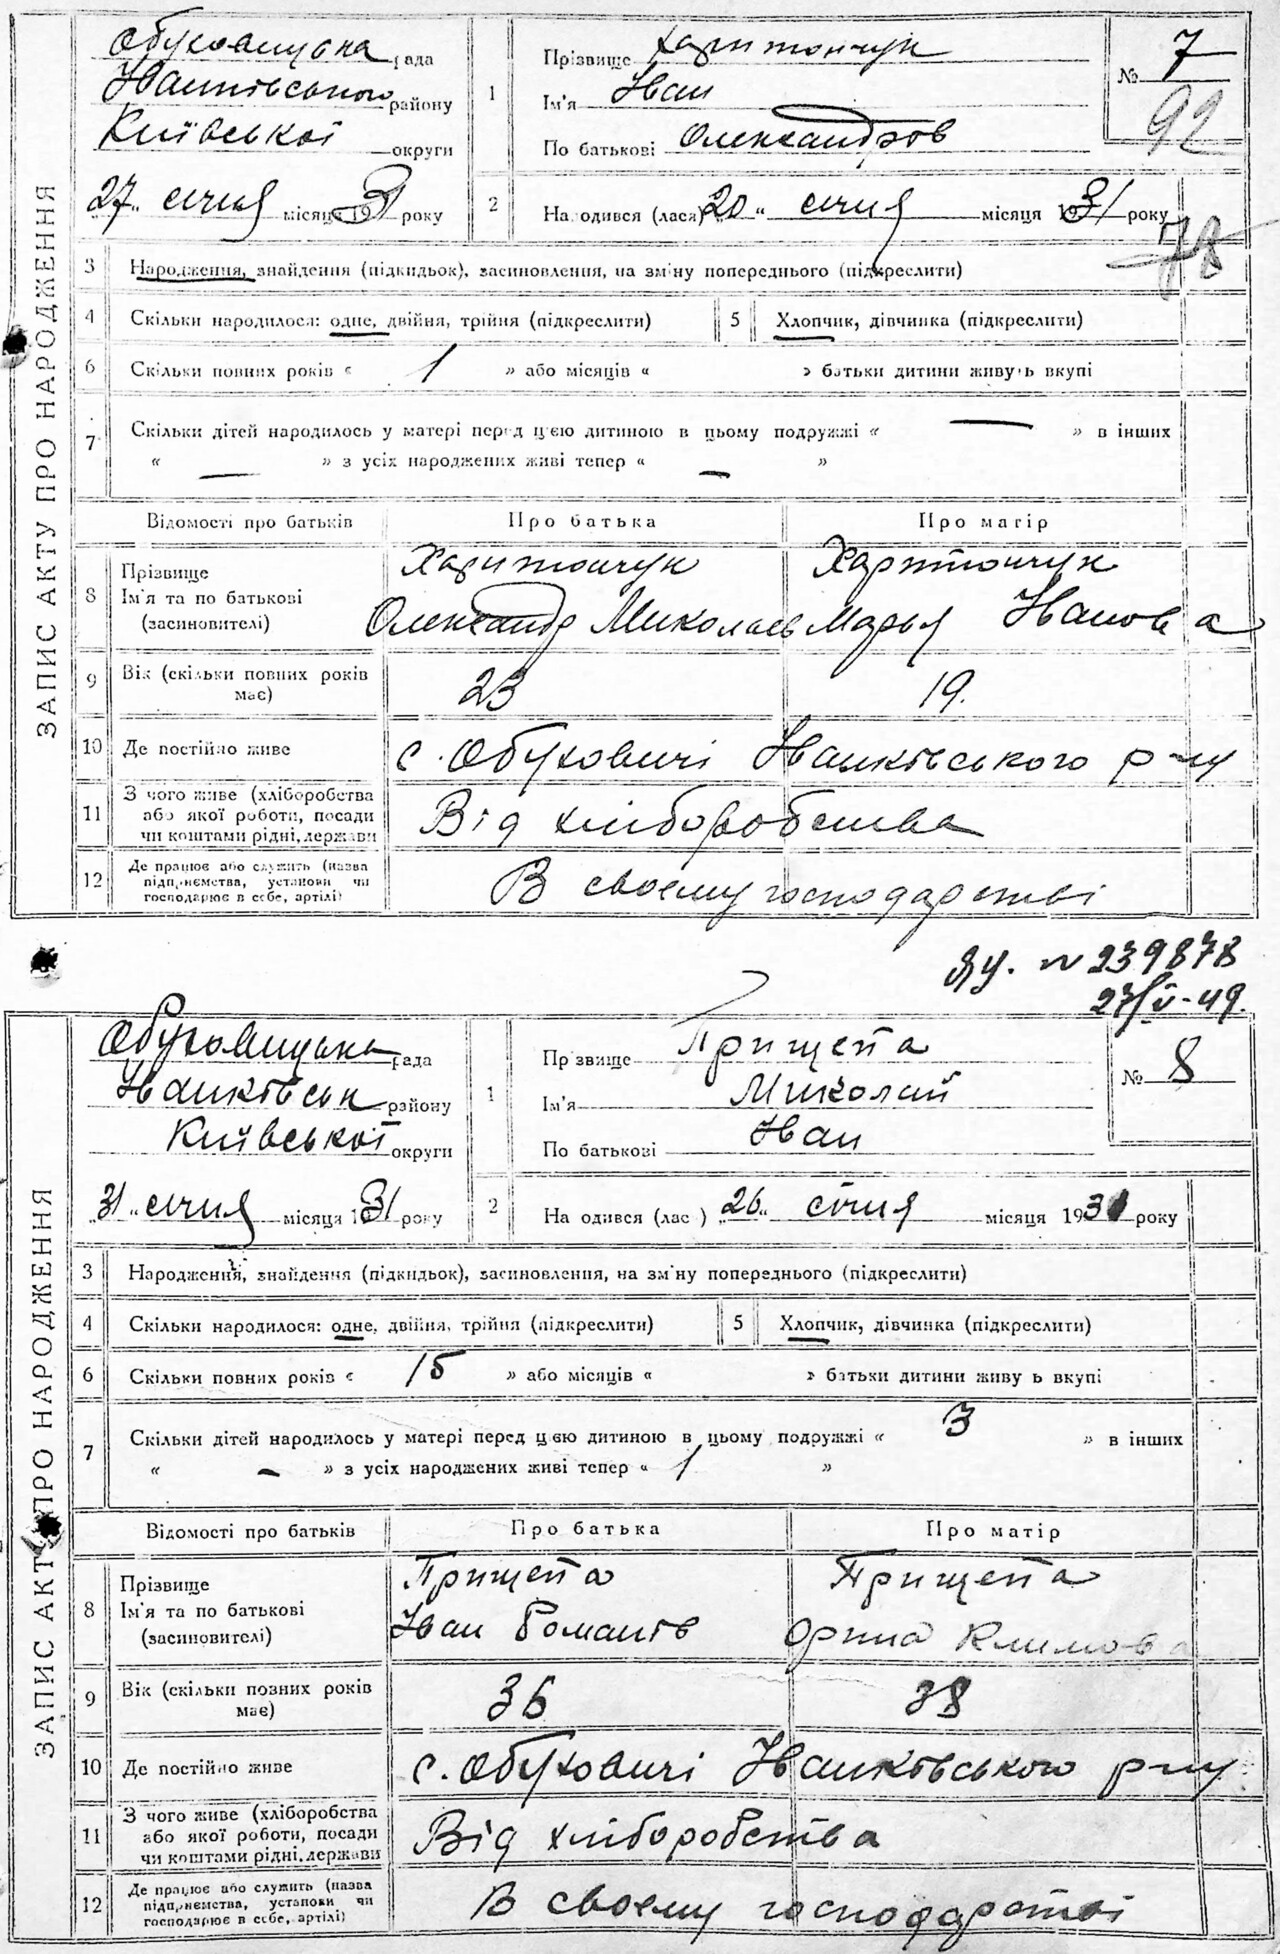 ЗАПИС АКТУ ПРО НАРОДЖЕННЯ
Обуховицька рада
Іванківського району
Київської округи
"27" січня місяця 1931 року
1 Прізвище Харитончук
Ім'я Іван
По батькові Олександров
№ 7
92
78
2 Народився (лася) "20" січня місяця 1931 року
3 Народження, знайдення (підкидьок), засиновлення, на зміну попереднього (підкреслити)
4 Скільки народилося: одне, двійня, трійня (підкреслити) 5 Хлопчик, дівчинка (підкреслити)
6 Скільки повних років « 1 » або місяців « » батьки дитини живуть вкупі
7 Скільки дітей народилось у матері перед цією дитиною в цьому подружжі « — » в інших
« — » з усіх народжених живі тепер « — »
Відомості про батьків Про батька Про матір
8 Прізвище Харитончук Харитончук
Ім'я та по батькові Олександр Миколаєв Марья Іванова
(засиновителі)
9 Вік (скільки повних років має) 23 19.
10 Де постійно живе с. Обуховичі Іванківського р-ну
11 З чого живе (хліборобства
або якої роботи, посади Від хліборобства
чи коштами рідні, держави
12 Де працює або служить (назва
підприємства, установи чи В своєму господарстві
господарює в себе, артілі)
№ 239878
27/V-49.
ЗАПИС АКТУ ПРО НАРОДЖЕННЯ
Обуховицька рада
Іванківськ району
Київської округи
"31" січня місяця 1931 року
1 Прізвище Прищепа
Ім'я Миколай
По батькові Іван
№ 8
2 Народився (лас ) "26" січня місяця 1931 року
3 Народження, знайдення (підкидьок), засиновлення, на зміну попереднього (підкреслити)
4 Скільки народилося: одне, двійня, трійня (підкреслити) 5 Хлопчик, дівчинка (підкреслити)
6 Скільки повних років « 15 » або місяців « » батьки дитини живуть вкупі
7 Скільки дітей народилось у матері перед цією дитиною в цьому подружжі « 3 » в інших
« — » з усіх народжених живі тепер « 1 »
Відомості про батьків Про батька Про матір
8 Прізвище Прищепа Прищепа
Ім'я та по батькові Іван Романів Орина Климова
(засиновителі)
9 Вік (скільки повних років має) 36 38
10 Де постійно живе с. Обуховичі Іванківського р-ну
11 З чого живе (хліборобства
або якої роботи, посади Від хліборобства
чи коштами рідні, держави
12 Де працює або служить (назва
підприємства, установи чи В своєму господарстві
господарює в себе, артілі)